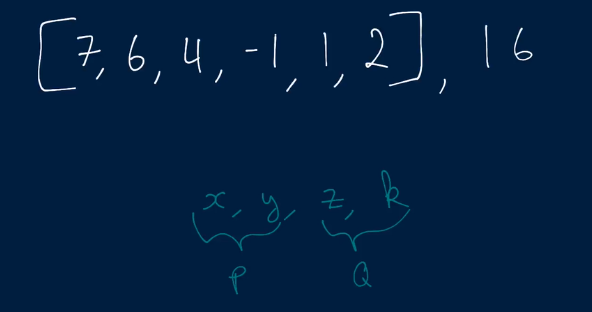 [7, 6, 4, -1, 1, 2], 16
x, y, z, k
P Q